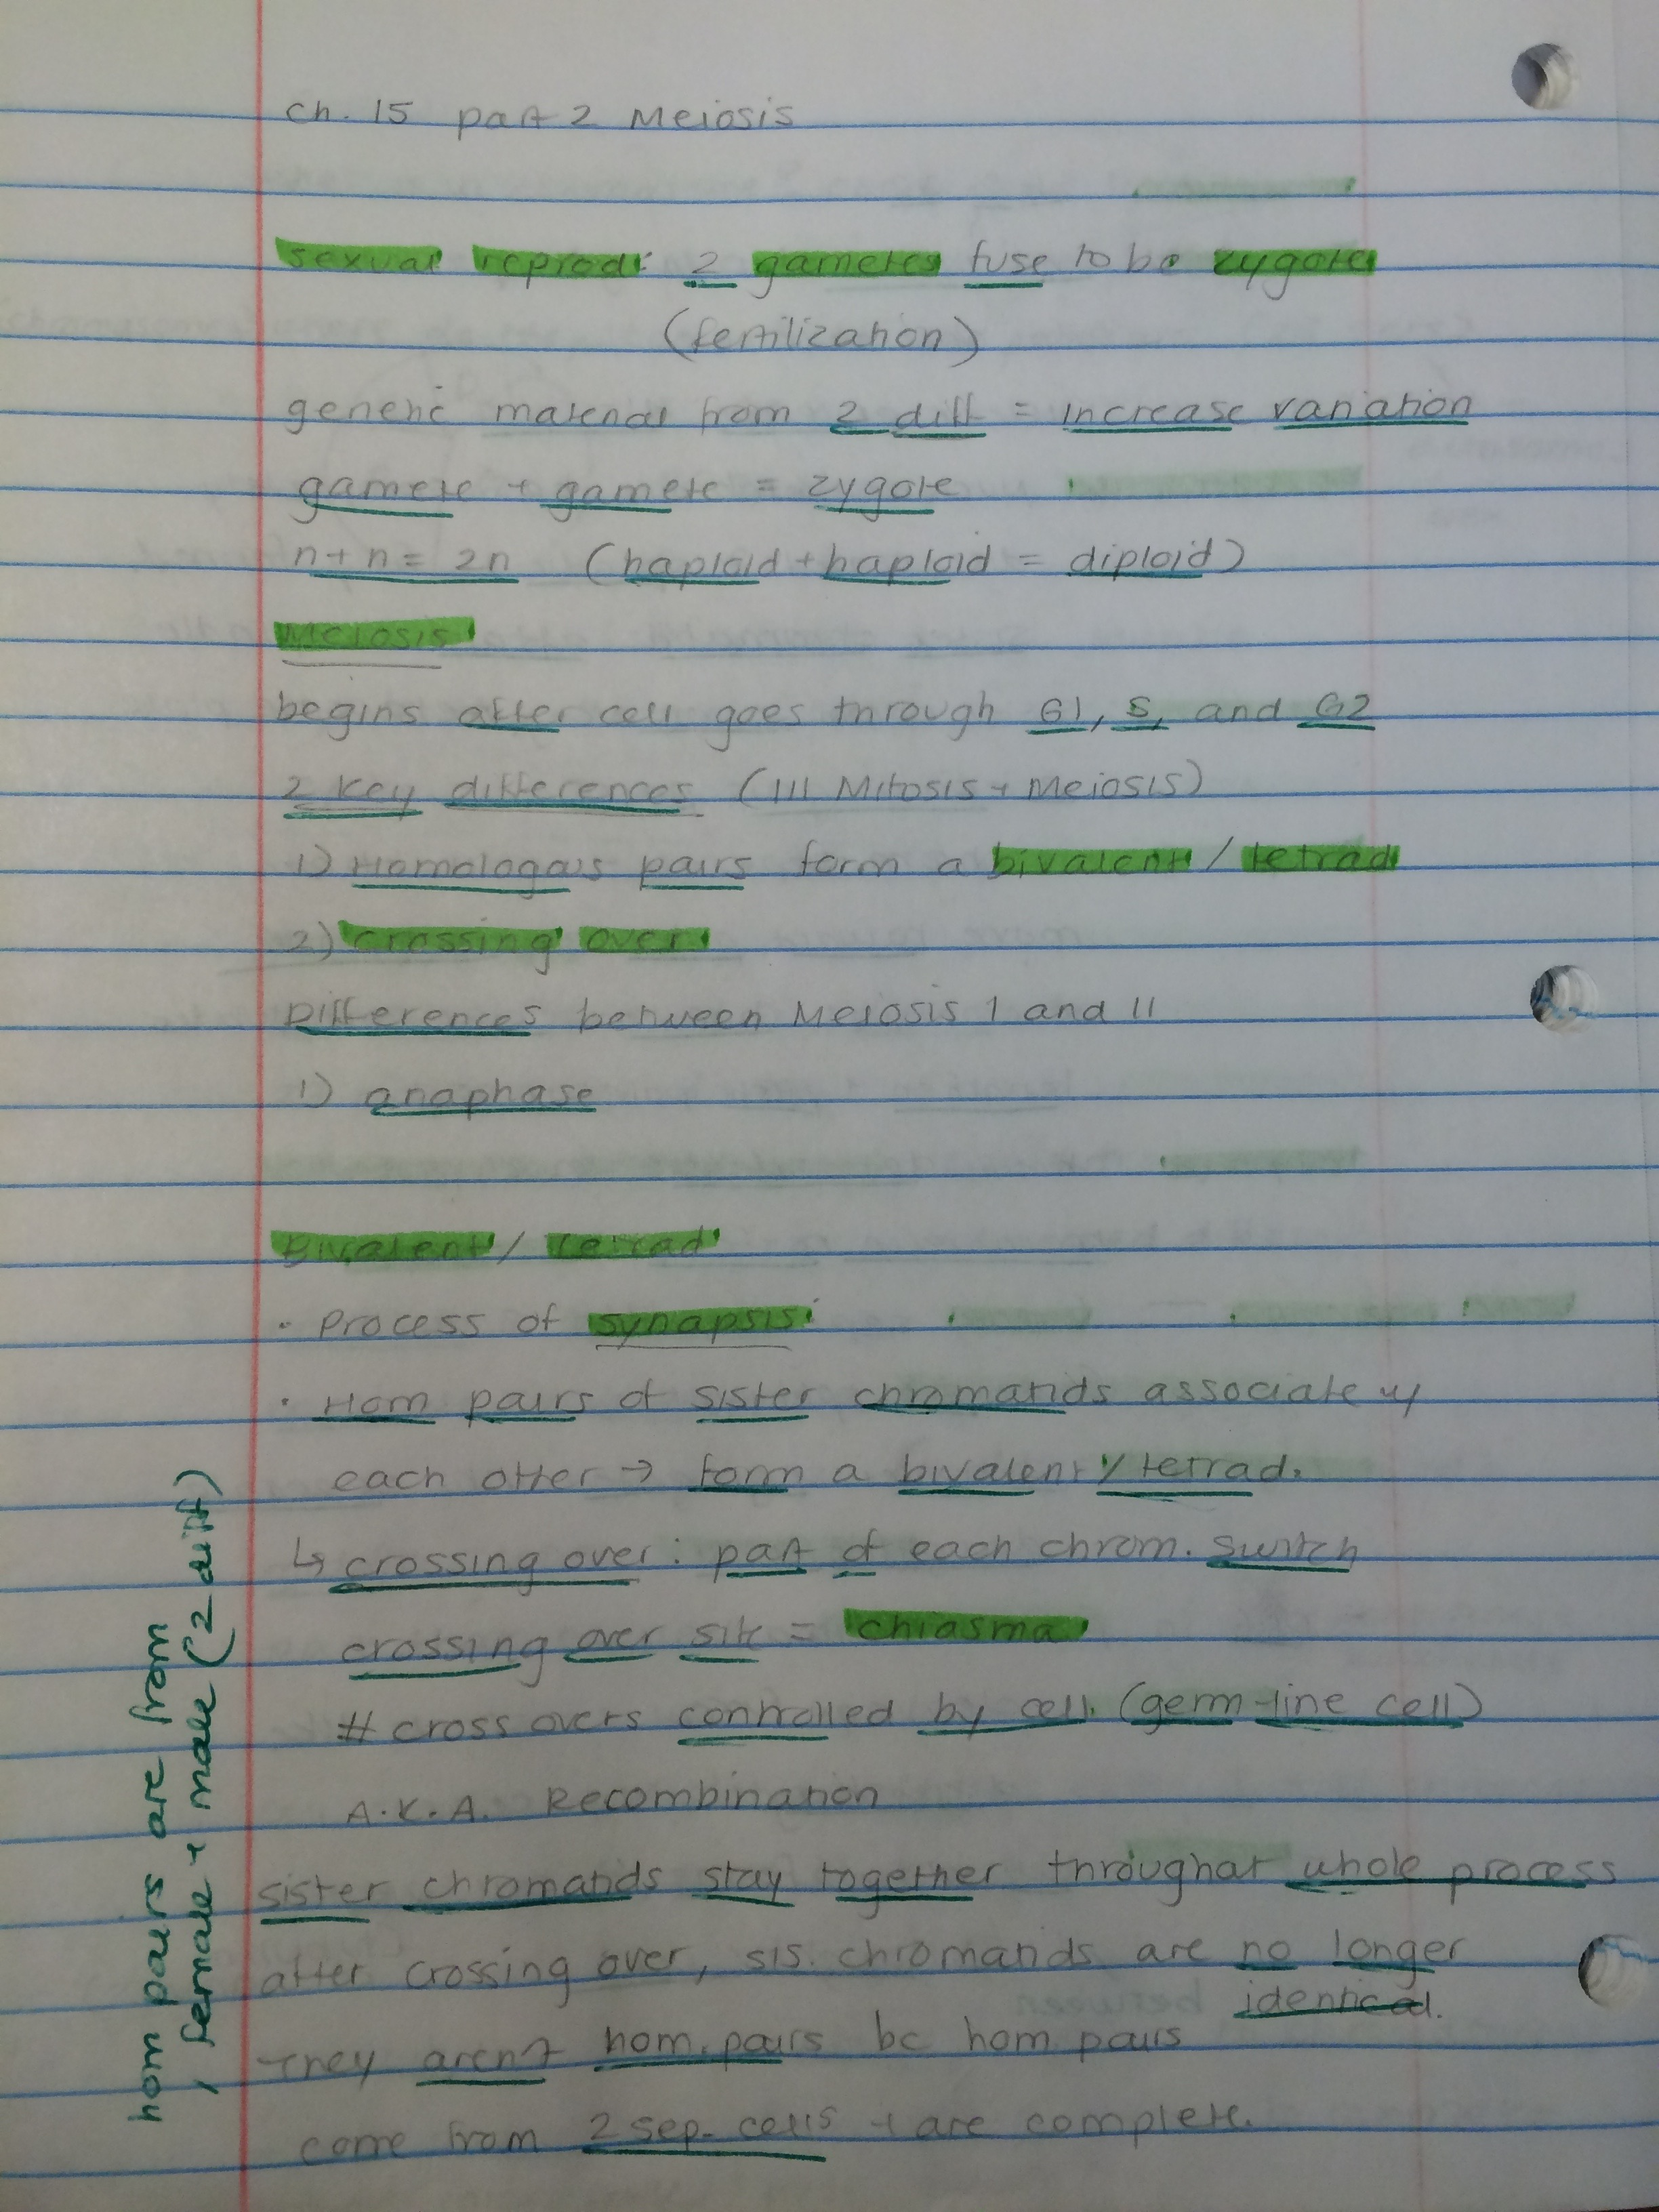 Ch. 15 part 2 Meiosis
sexual reprod: 2 gametes fuse to be zygote
(fertilization)
genetic material from 2 diff = increase variation
gamete + gamete = zygote
n + n = 2n (haploid + haploid = diploid)
Meiosis
begins after cell goes through G1, S, and G2
2 key differences (/// Mitosis + Meiosis)
1) Homologous pairs form a bivalent / tetrad
2) crossing over
Differences between Meiosis I and II
1) anaphase
Bivalent / tetrad
· Process of synapsis:
· Hom pairs of sister chromatids associate w/
each other → form a bivalent / tetrad.
↳ crossing over: part of each chrom. switch
crossing over site = chiasma
# cross overs controlled by cell (germ-line cell)
A.K.A. Recombination
sister chromatids stay together throughout whole process
after crossing over, sis. chromatids are no longer
identical.
They aren't hom. pairs bc hom pairs
come from 2 sep. cells + are complete.
hom pairs are from
female + male (2 diff)